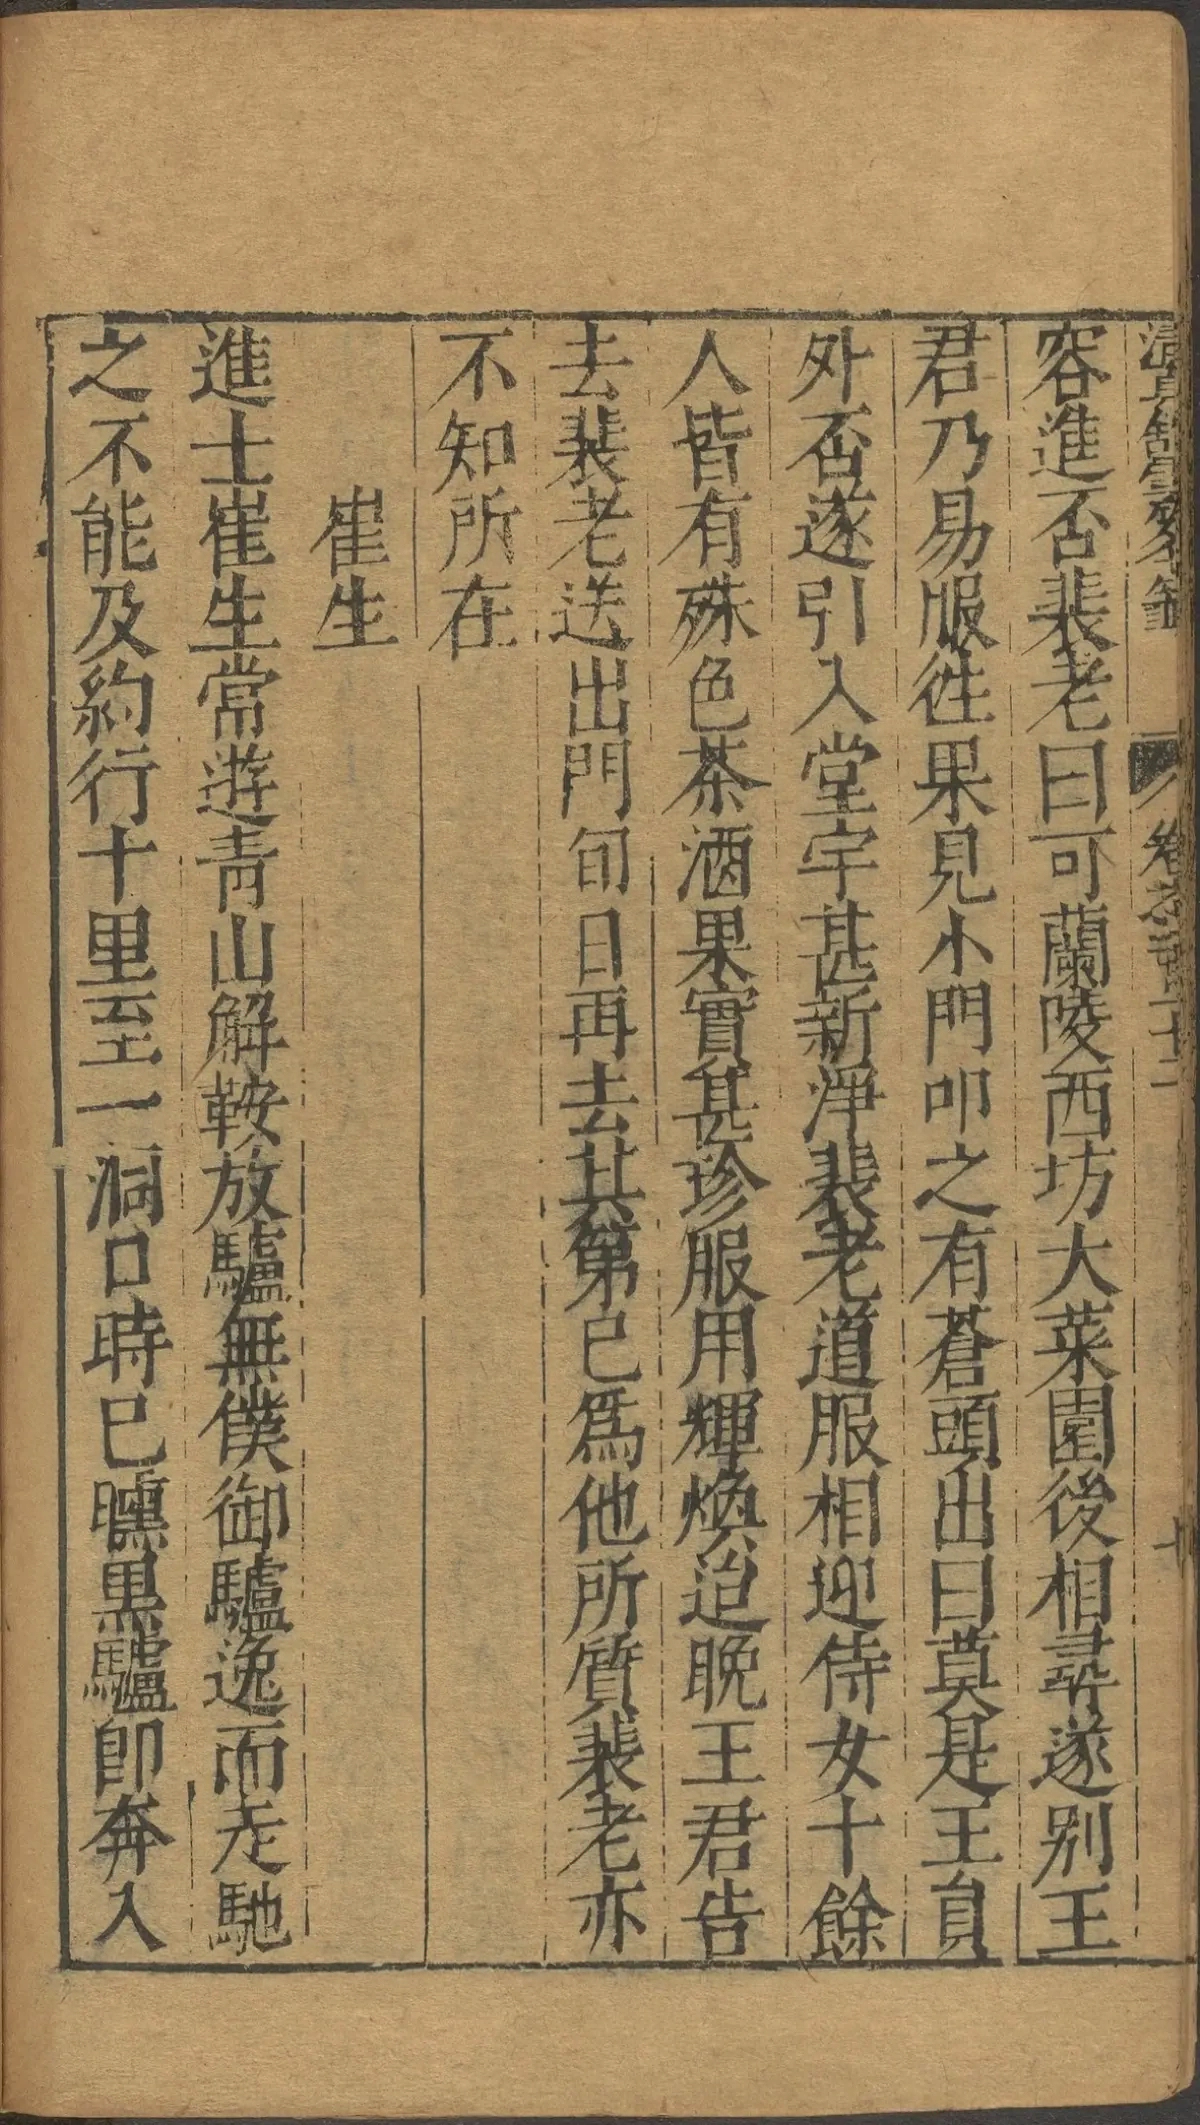 卷之二十二
容進否裴老曰可蘭陵西坊大菜園後相尋遂别王
君乃易服徃果見小門叩之有蒼頭出曰莫是王負
外否遂引入堂宇甚新淨裴老道服相迎侍女十餘
人皆有殊色茶酒果實甚珍服用輝煥迨晚王君告
去裴老送出門旬日再去其第已爲他所質裴老亦
不知所在
崔生
進士崔生常遊靑山解鞍放驢無僕御驢逸而走馳
之不能及約行十里至一洞口時已曛黑驢卽奔入